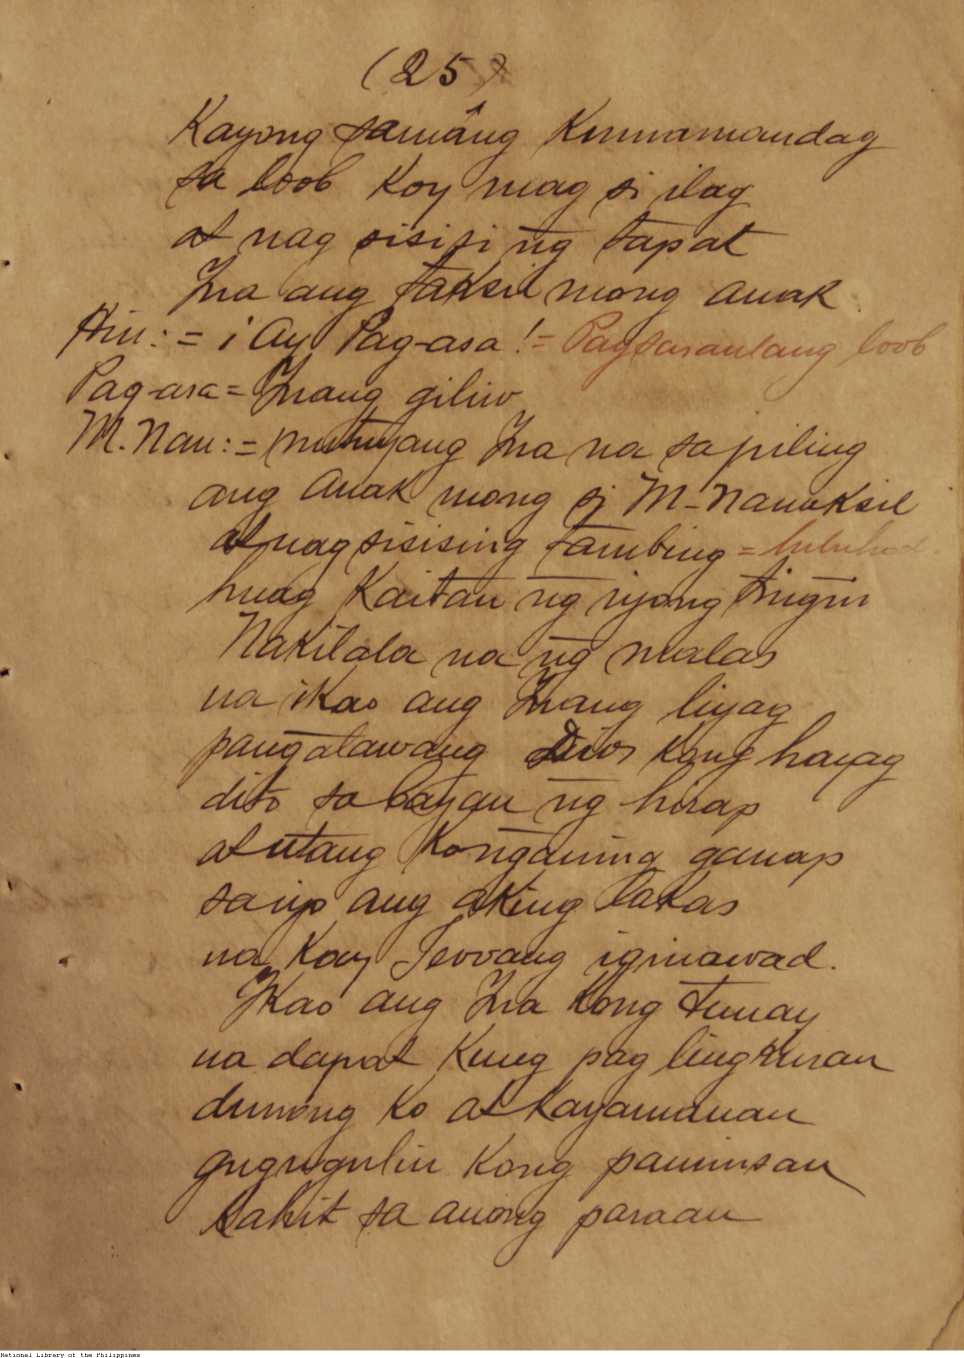 (25)
Kayong samâng Kumamandag
sa loob Koy mag si ilag
at nag sisisi n͠g tapat
Ina ang taksil mong anak
Hin: = ¡Ay Pag-asa! = Pagsasaulang loob
Pag-asa = Inang giliw
M. Nan: = mutyang Ina na sa piling
ang anak mong si M-Nanaksil
at nag sisising tambing = luluhod.
huag Kaitan n͠g iyong tin͠gin
Nakilala na n͠g malas
na ikao ang Inang liyag
pan͠galawang Dios Kong hayag
dito sa bayan n͠g hirap
at utang Kon͠ganing ganap
sa iyo ang aking lakas
na Kay Jeovang iginawad.
Ikao ang Ina Kong tunay
na dapat Kung pag lingkuran
dunong Ko at Kayamanan
gugugulin Kong paminsan
Kahit sa anong paraan
National Library of the Philippines